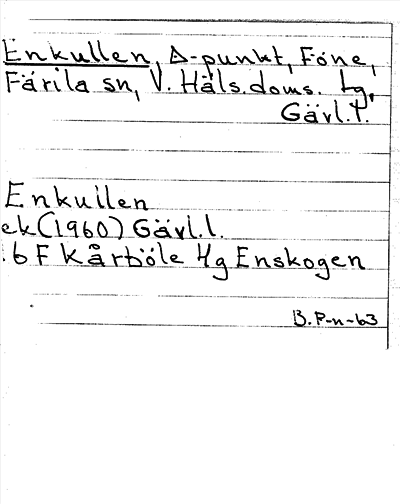 Enkullen, Δ-punkt, Föne,
Färila sn, V. Häls.doms. tg,
Gävl.l.
Enkullen
ek(1960) Gävl.l.
.6 F Kårböle Hg Enskogen
B.P-n-63